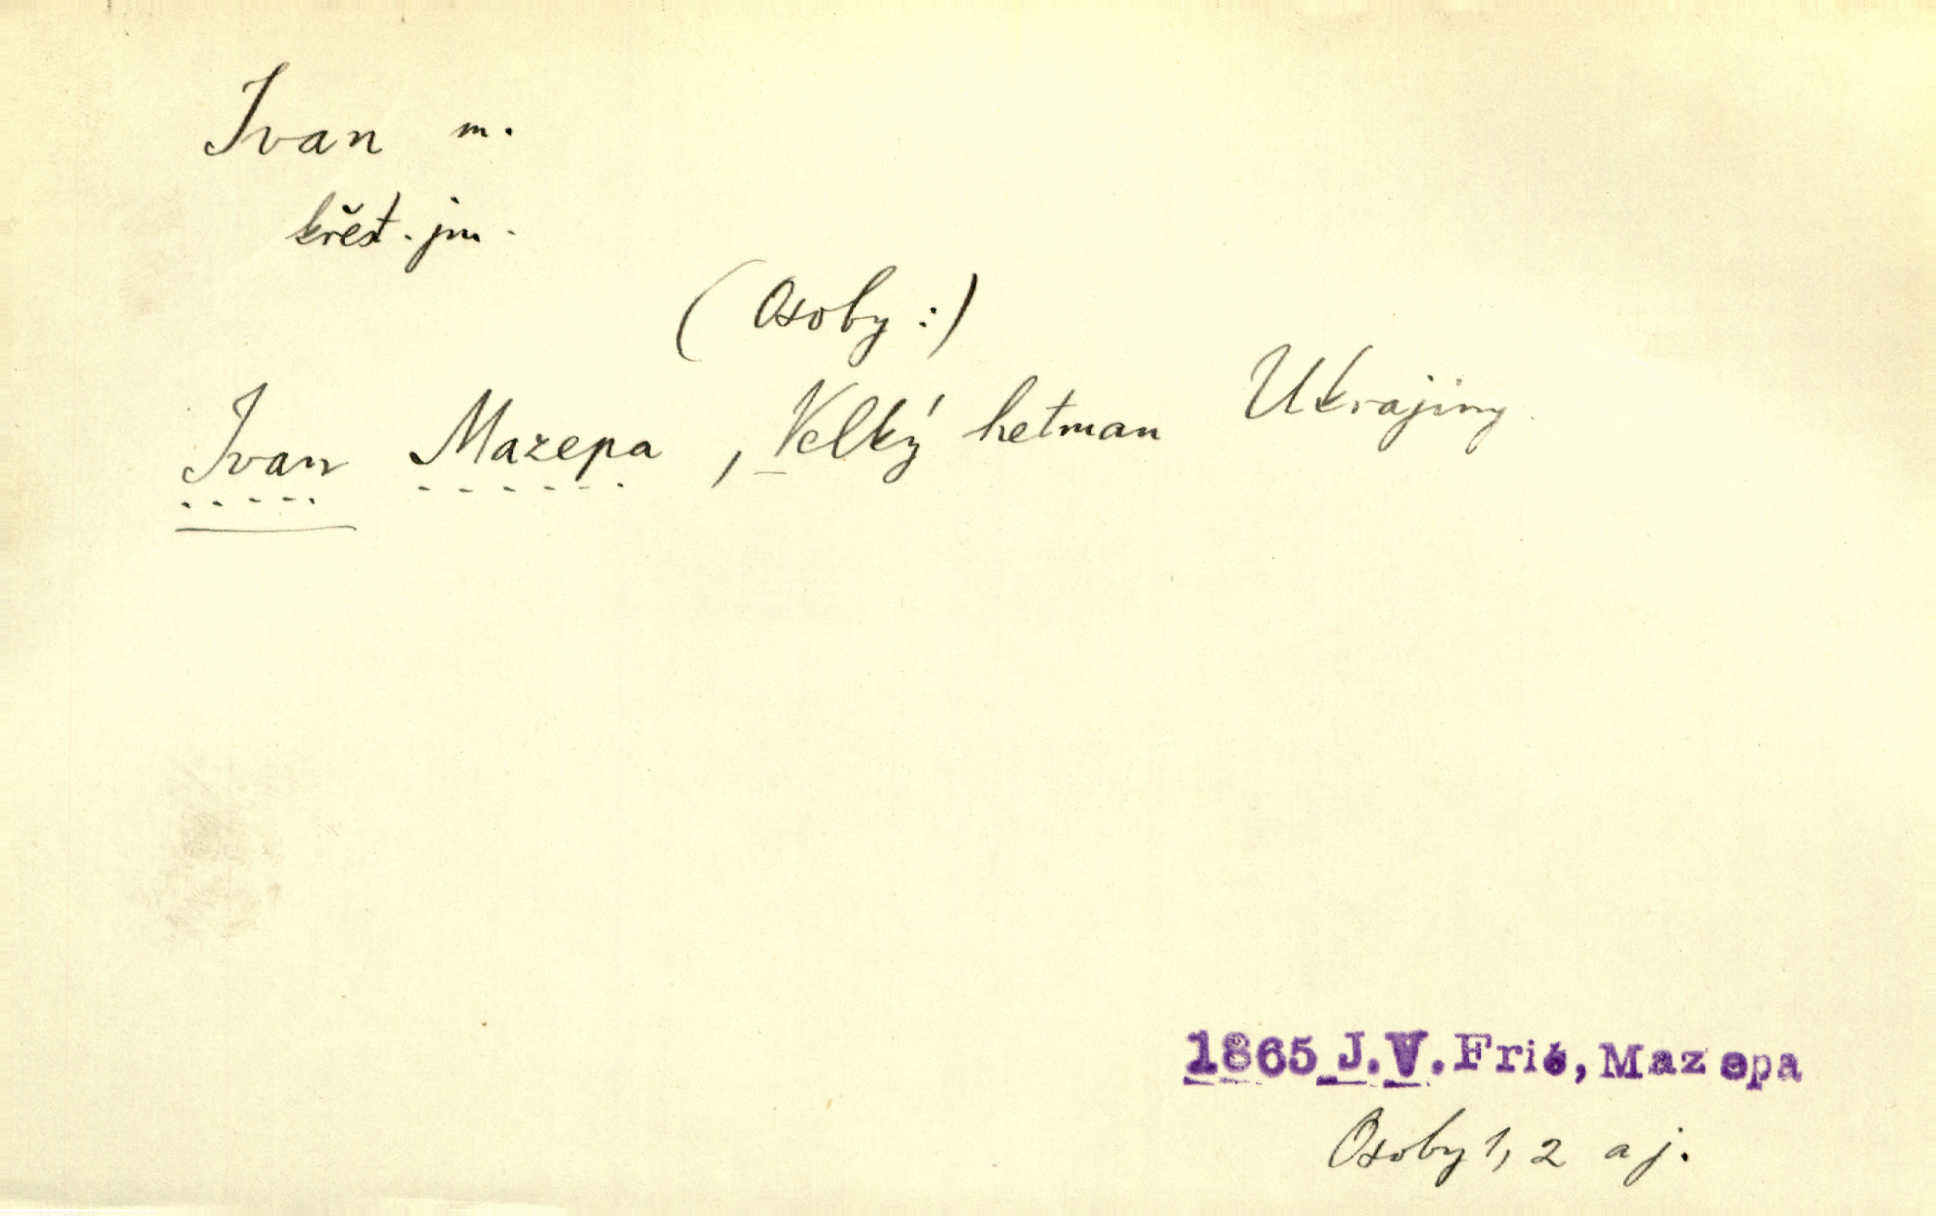 Ivan m.
křest. jm.
(Osoby:)
Ivan Mazepa, Velký hetman Ukrajiny
1865 J.V.Frič, Mazepa
Osoby 1, 2 a j.